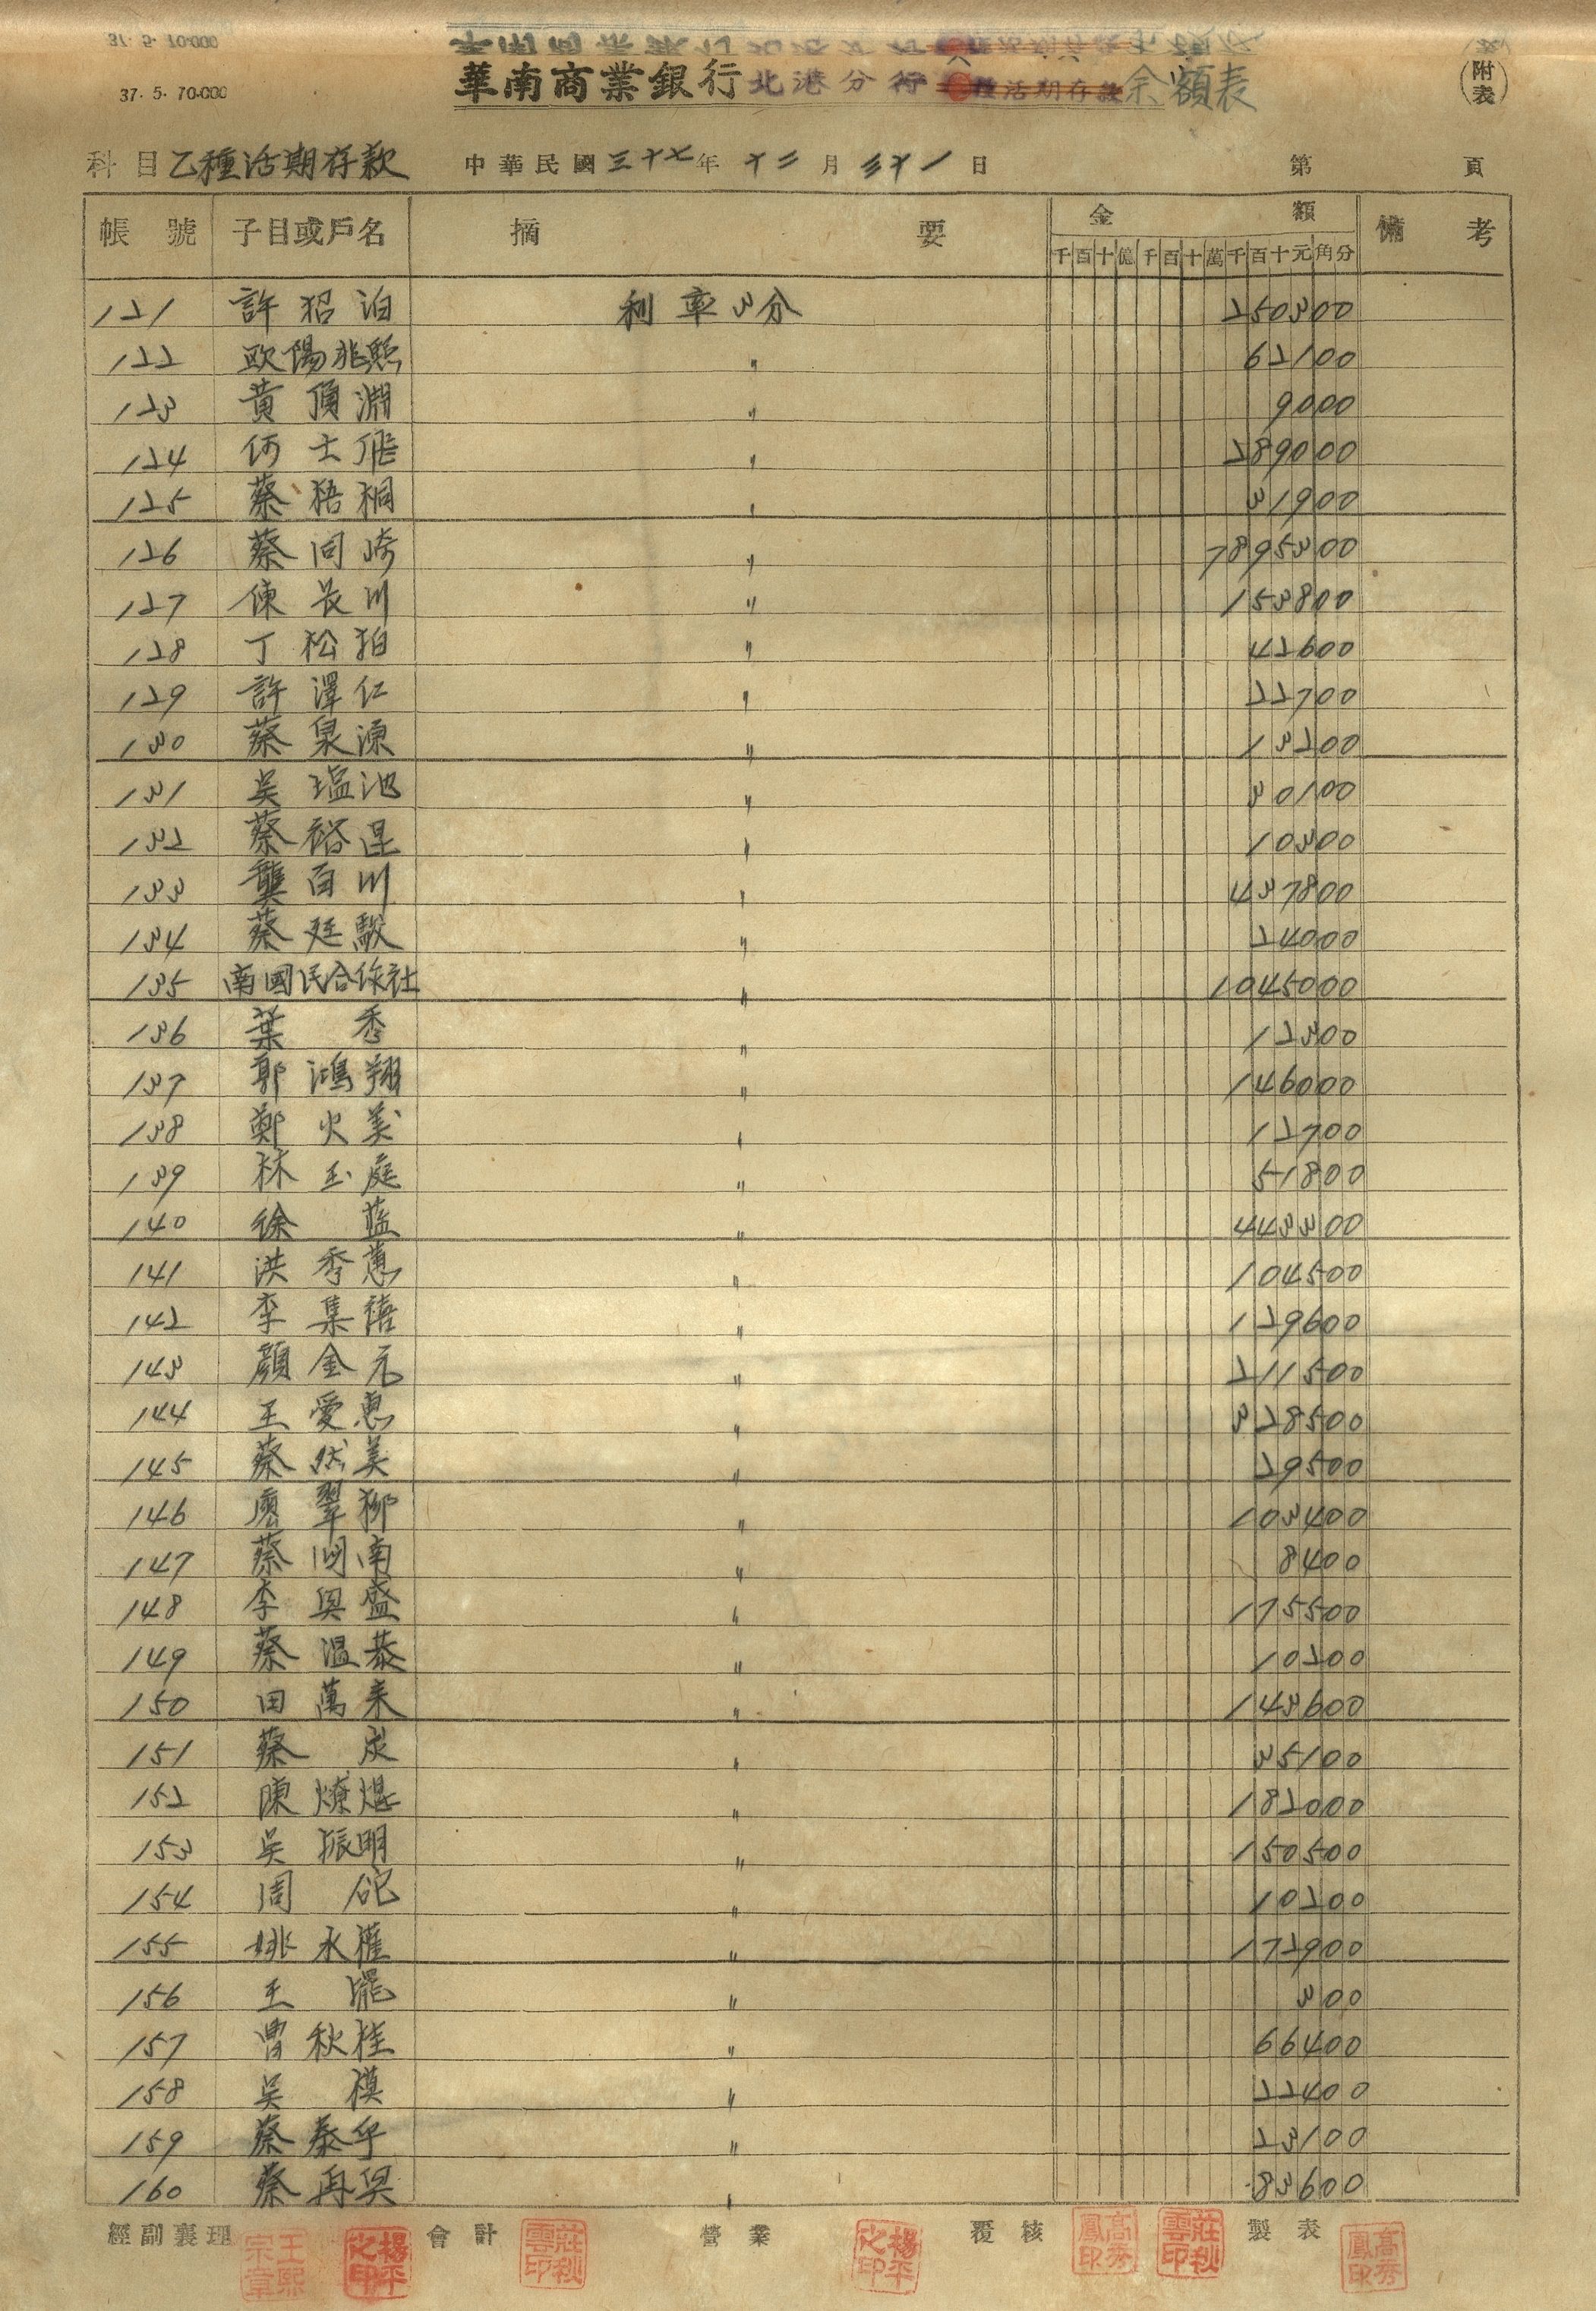 37. 5. 70.000
華南商業銀行北港分行 種活期存款余額表
(附表)
科目乙種活期存款 中華民國三十七年十二月三十一日 第 頁
帳號 子目或戶名 摘要 金額 備考
千百十億千百十萬千百十元角分
121 許招泊 利率3分 250300
122 欧陽兆熙 〃 62100
123 黃頂淵 〃 9000
124 何士飛 〃 289000
125 蔡梧桐 〃 31900
126 蔡同崎 〃 7895300
127 陳長川 〃 153800
128 丁松柏 〃 42600
129 許澤仁 〃 22700
130 蔡泉源 〃 13200
131 吳塩池 〃 30100
132 蔡裕昆 〃 10300
133 龔百川 〃 437800
134 蔡廷駿 〃 24000
135 南國民合作社 〃 1045000
136 葉香 〃 12300
137 郭鴻翔 〃 146000
138 鄭火美 〃 12700
139 林玉庭 〃 51800
140 徐藍 〃 443300
141 洪秀蕙 〃 104500
142 李集禧 〃 129600
143 顏金元 〃 211500
144 王愛惠 〃 328500
145 蔡然美 〃 29500
146 廖翠柳 〃 103400
147 蔡開南 〃 8400
148 李興盛 〃 175500
149 蔡温恭 〃 10200
150 田萬来 〃 143600
151 蔡炭 〃 35100
152 陳燎煌 〃 182000
153 吳振明 〃 150500
154 周 〃 10200
155 姚永權 〃 172900
156 王 〃 300
157 曾秋桂 〃 66400
158 吳模 〃 22400
159 蔡泰乎 〃 23100
160 蔡再興 〃 83600
經副襄理 會計 營業 覆核 製表
王熙宗章 楊平化印 莊秋雲印 楊平化印 高秀鳳印 莊秋雲印 高秀鳳印